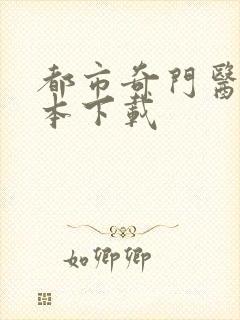 都市奇門醫
本下載
如卿卿